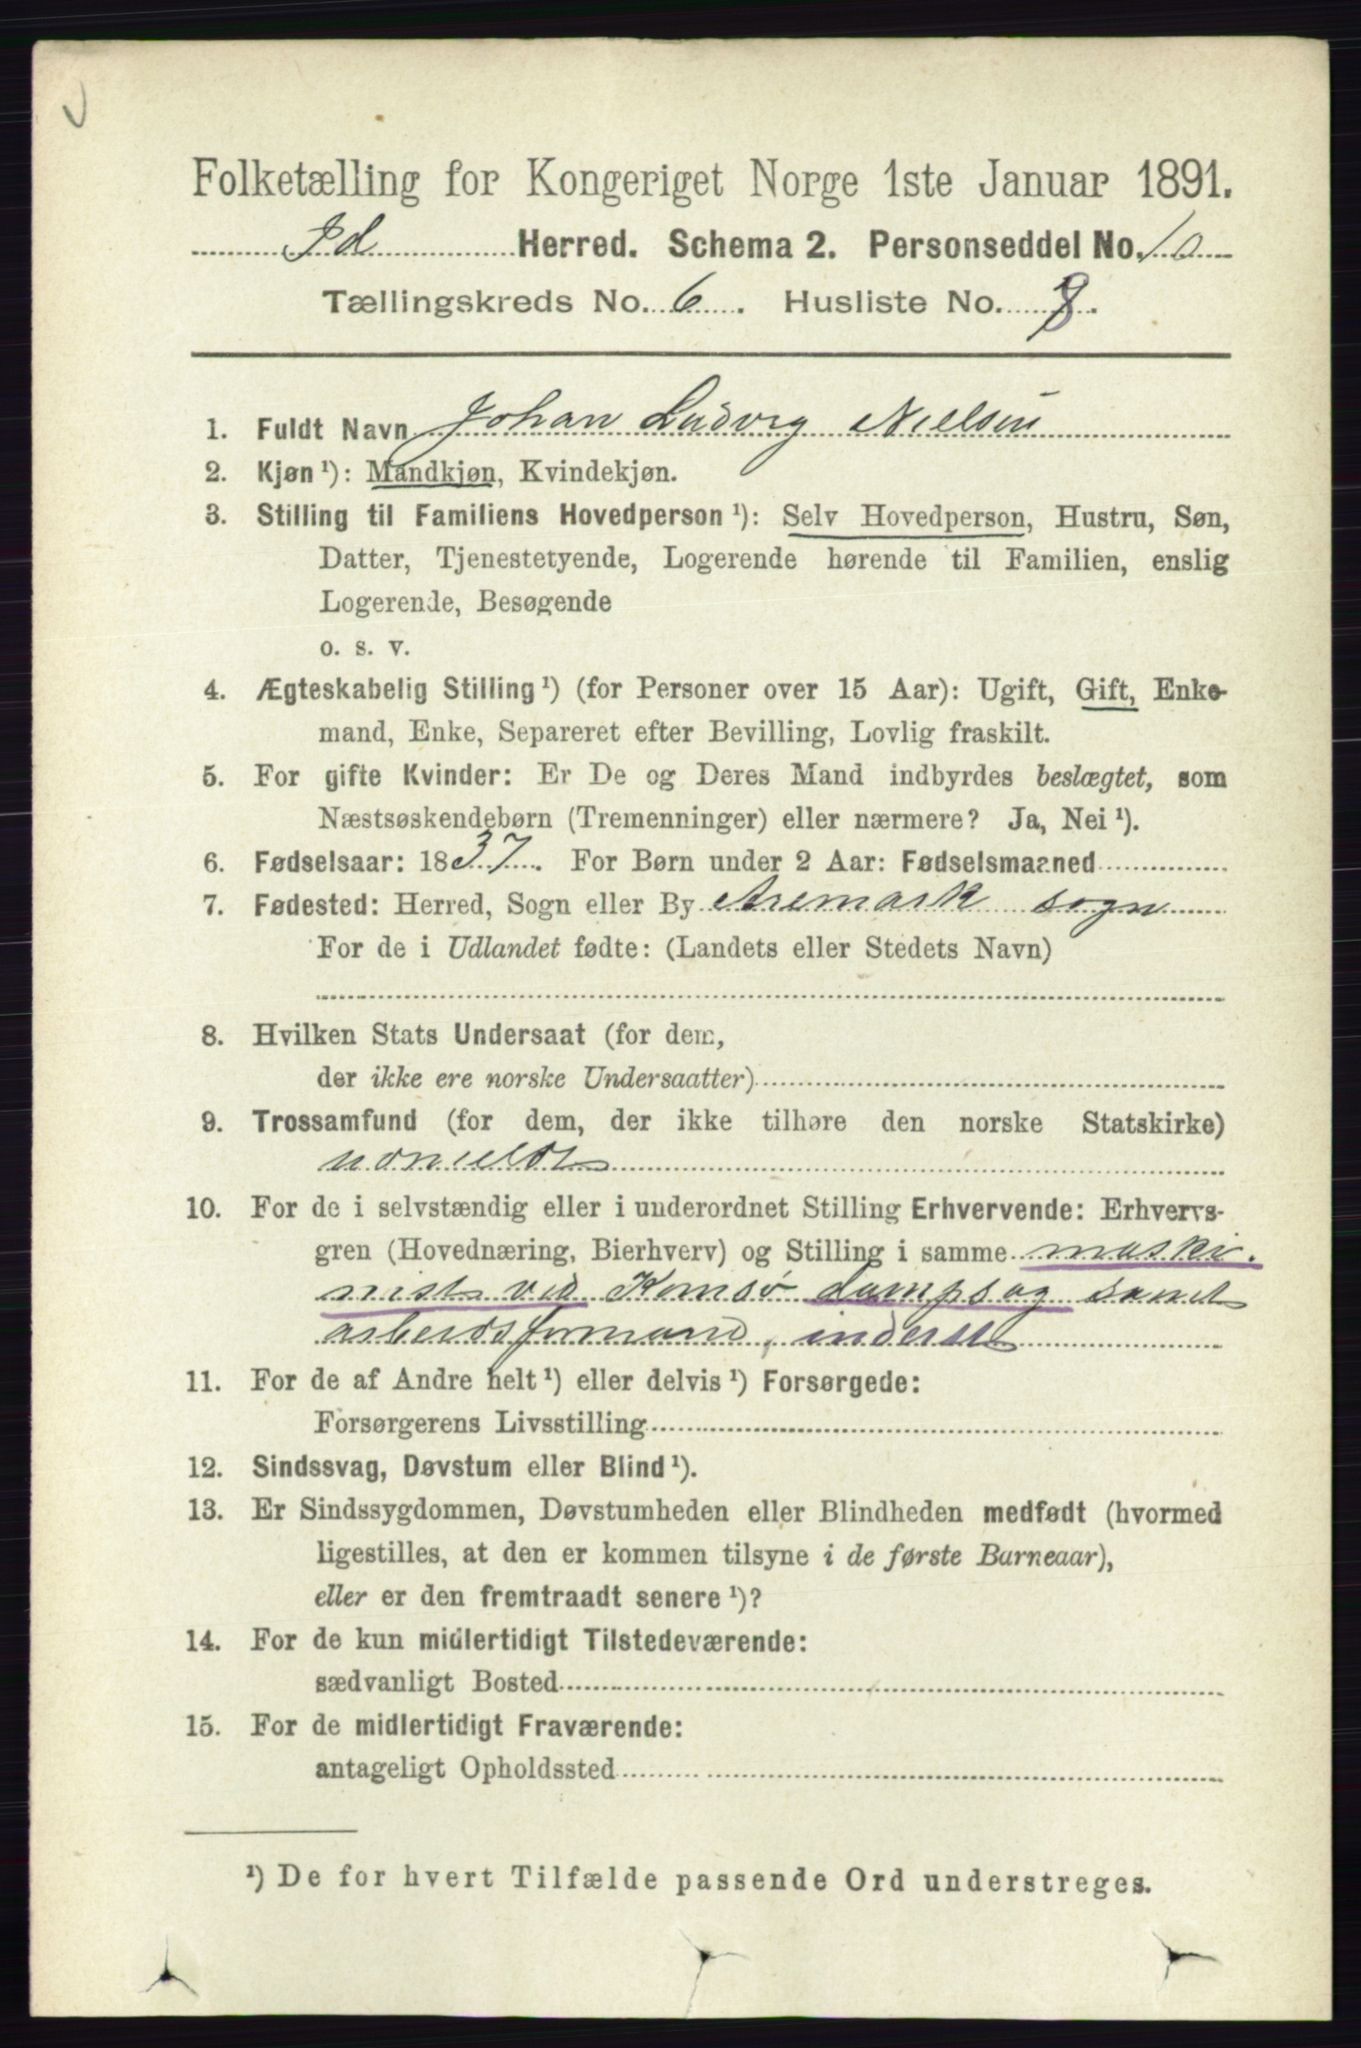 Folketælling for Kongeriget Norge 1ste Januar 1891.
Id Herred. Schema 2. Personseddel No. 10
Tællingskreds No. 6. Husliste No. 8.
1. Fuldt Navn Johan Ludvig Nielsen
2. Kjøn ¹): Mandkjøn, Kvindekjøn.
3. Stilling til Familiens Hovedperson ¹): Selv Hovedperson, Hustru, Søn,
Datter, Tjenestetyende, Logerende hørende til Familien, enslig
Logerende, Besøgende
o. s. v.
4. Ægteskabelig Stilling ¹) (for Personer over 15 Aar): Ugift, Gift, Enke-
mand, Enke, Separeret efter Bevilling, Lovlig fraskilt.
5. For gifte Kvinder: Er De og Deres Mand indbyrdes beslægtet, som
Næstsøskendebørn (Tremenninger) eller nærmere? Ja, Nei ¹).
6. Fødselsaar: 1837. For Børn under 2 Aar: Fødselsmaaned
7. Fødested: Herred, Sogn eller By Aremark sogn
For de i Udlandet fødte: (Landets eller Stedets Navn)
8. Hvilken Stats Undersaat (for dem,
der ikke ere norske Undersaatter)
9. Trossamfund (for dem, der ikke tilhøre den norske Statskirke)
10. For de i selvstændig eller i underordnet Stilling Erhvervende: Erhvervs-
gren (Hovednæring, Bierhverv) og Stilling i samme maski-
nist ved Komsø dampsag samt
arbeidsformand, inderst
11. For de af Andre helt ¹) eller delvis ¹) Forsørgede:
Forsørgerens Livsstilling
12. Sindssvag, Døvstum eller Blind ¹).
13. Er Sindssygdommen, Døvstumheden eller Blindheden medfødt (hvormed
ligestilles, at den er kommen tilsyne i de første Barneaar),
eller er den fremtraadt senere ¹)?
14. For de kun midlertidigt Tilstedeværende:
sædvanligt Bosted
15. For de midlertidigt Fraværende:
antageligt Opholdssted
¹) De for hvert Tilfælde passende Ord understreges.